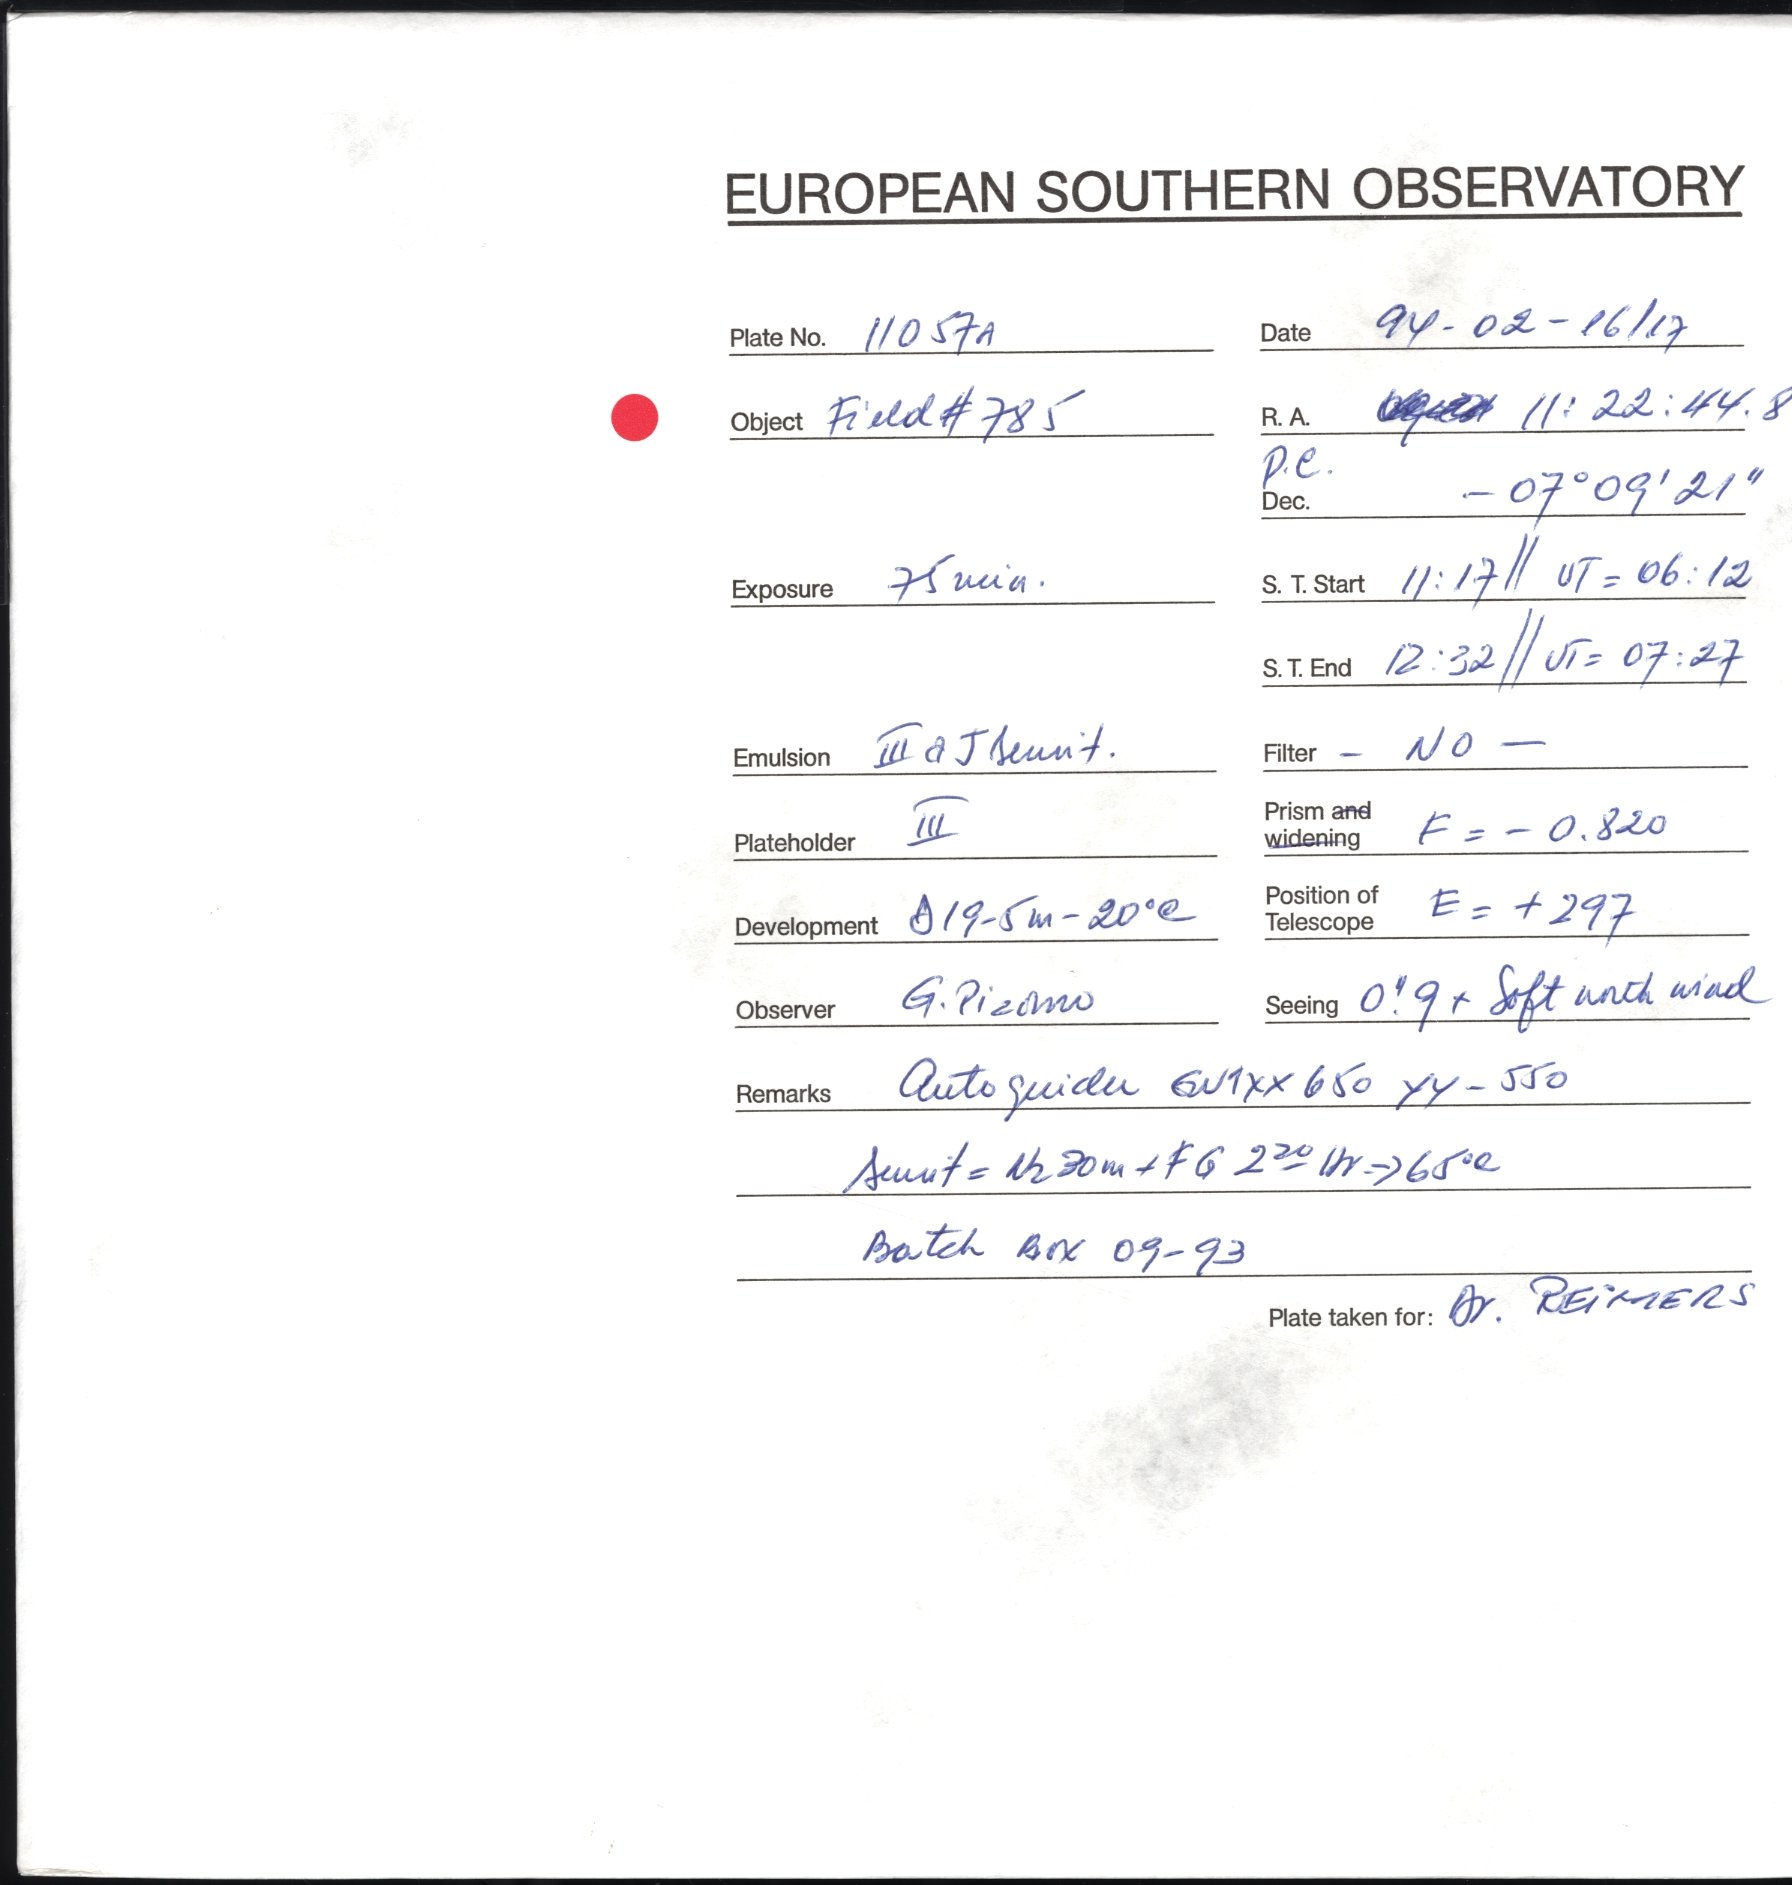 EUROPEAN SOUTHERN OBSERVATORY
Plate No. 11057A Date 94-02-16/17
Object Field # 785 R. A. 11: 22: 44. 8
P.C.
Dec. - 07° 09' 21"
Exposure 75 min. S. T. Start 11:17 // UT = 06:12
S. T. End 12:32 // UT = 07:27
Emulsion III a J Sensit. Filter - NO -
Plateholder III Prism and widening F = - 0.820
Development D19-5m-20°C Position of Telescope E = + 297
Observer G. Pizarro Seeing 0".9 + Soft north wind
Remarks Autoguider xx 650 yy - 550
Sensit = N2 30m + FG 2 Hr => 65°C
Batch Box 09-93
Plate taken for: Dr. REIMERS